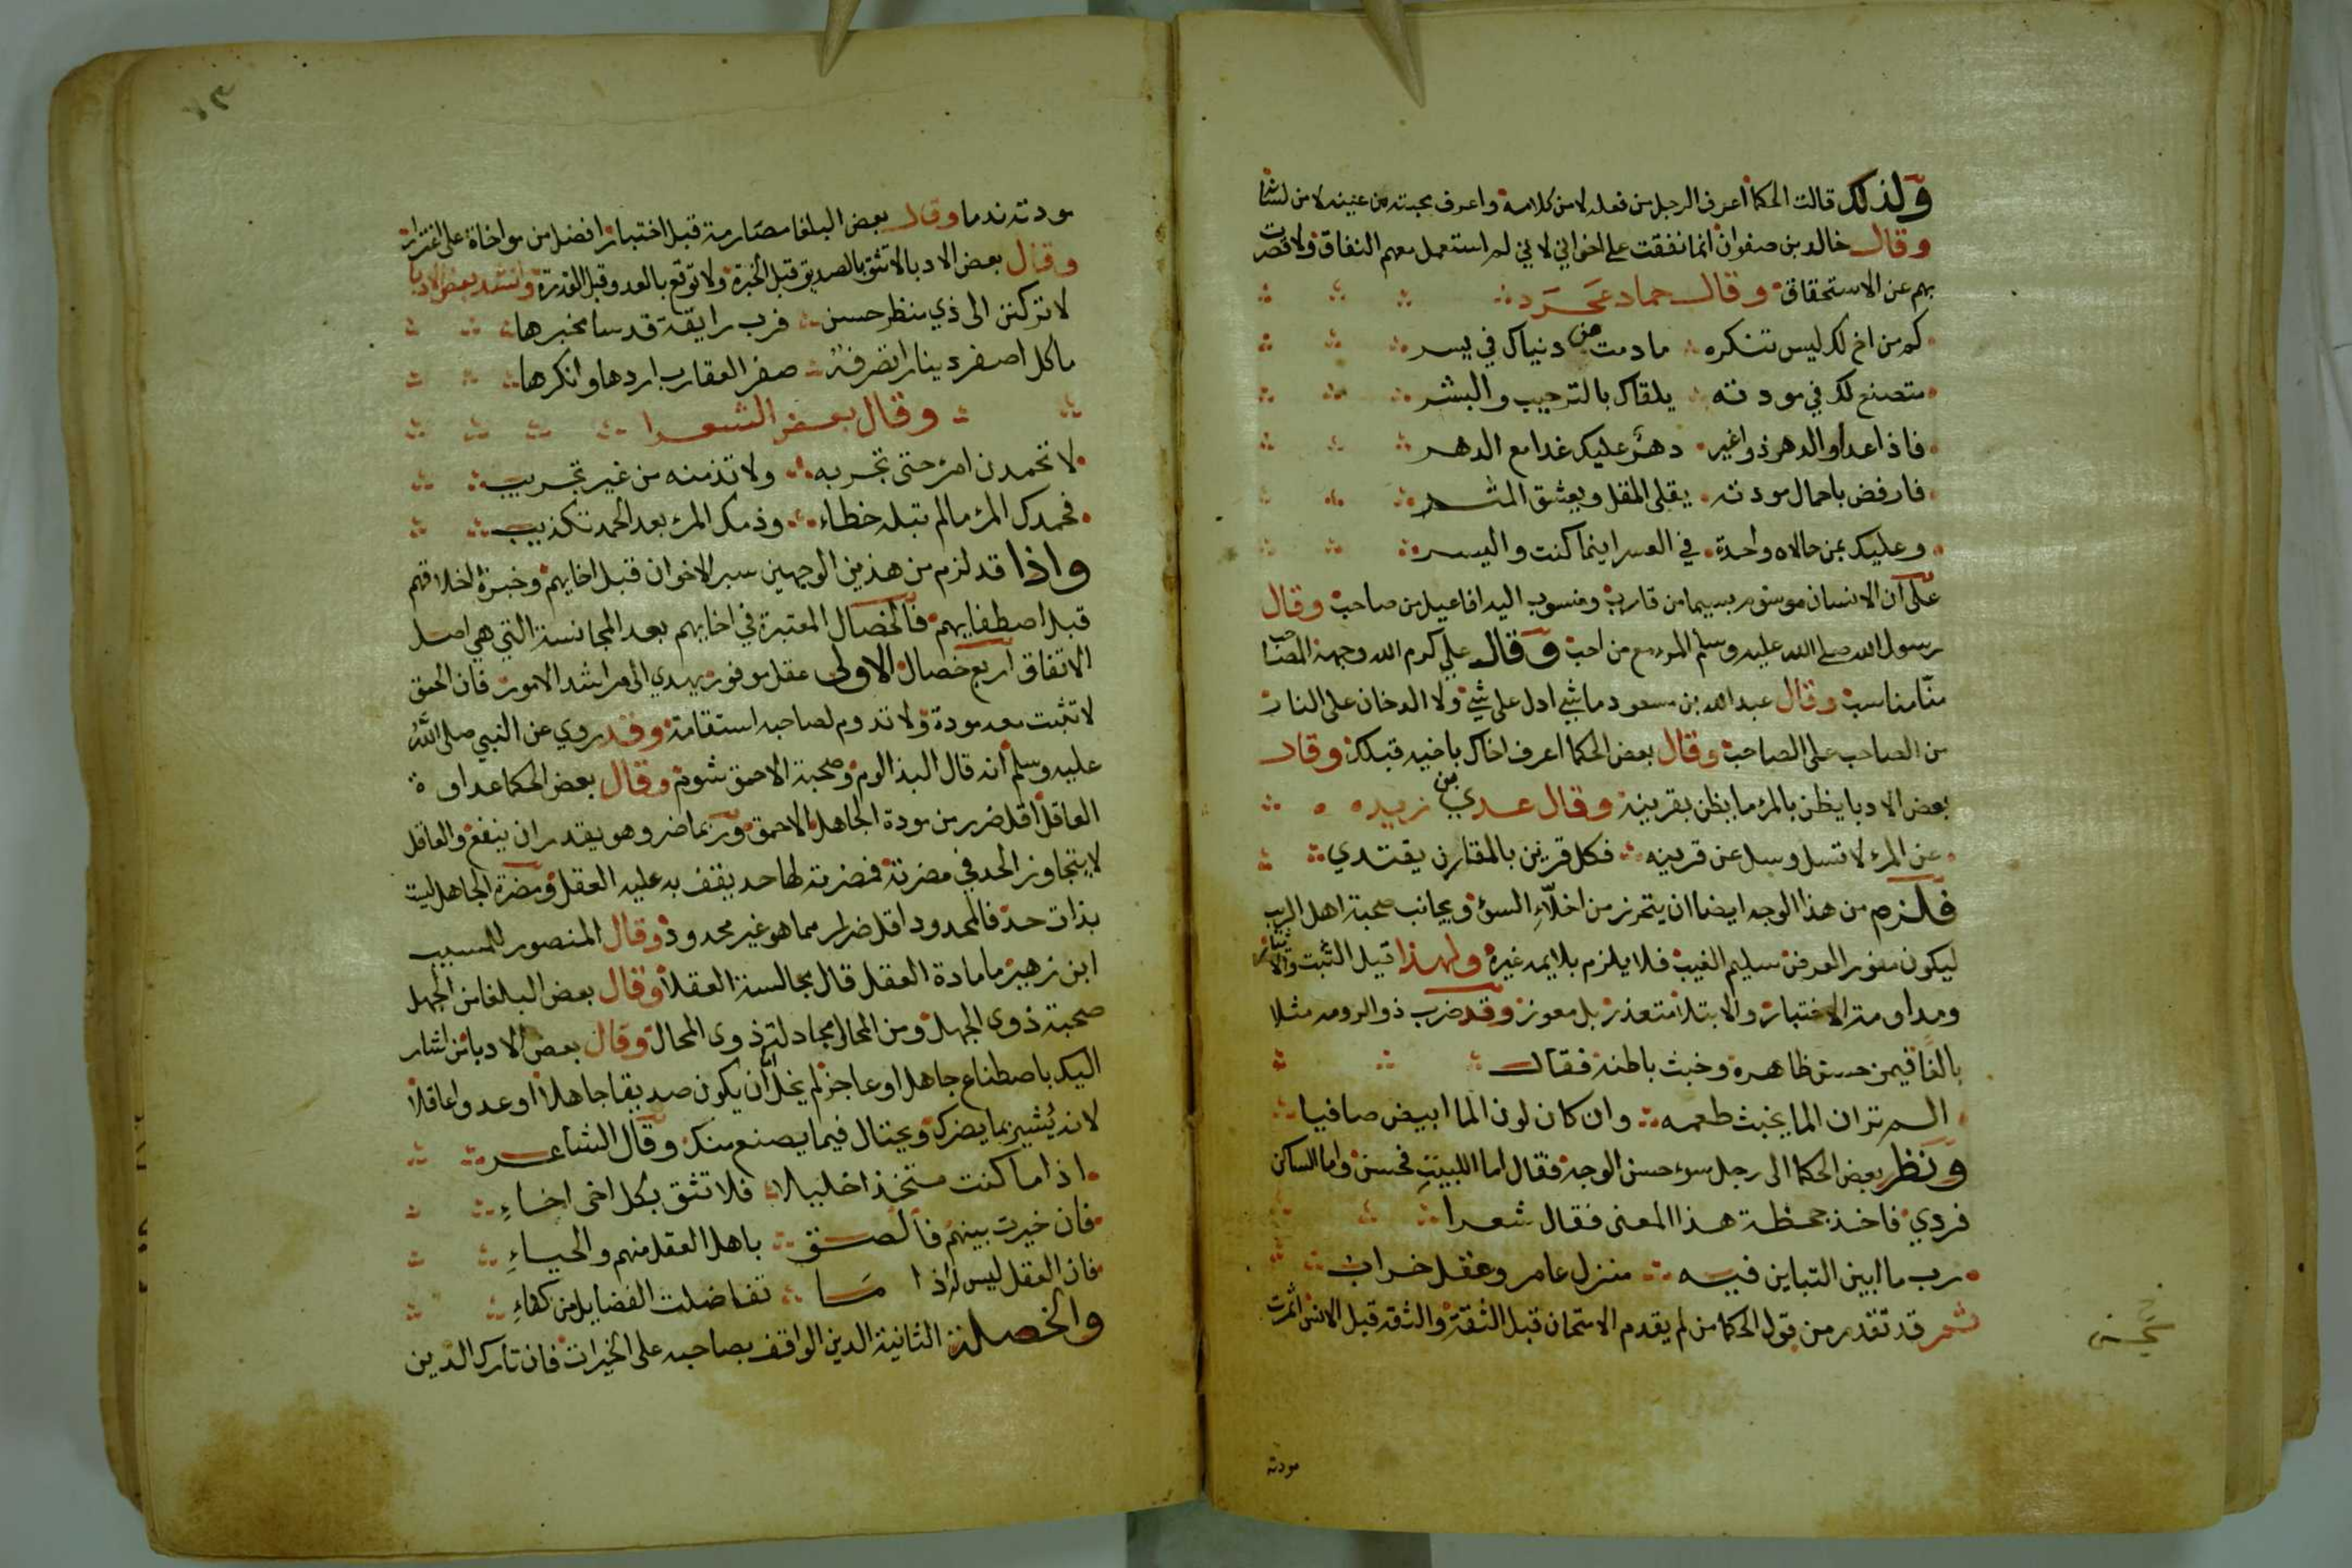 ولذلك قالت الحكما اعرف الرجل من فعله لا من كلامه واعرف محبته من عينيه لا من لسانه
وقال خالد بن صفوان انما نفقت على اخواني لاني لم استعمل معهم النفاق ولا قصرت
بهم عن الاستحقاق وقال حماد عجرد
كم من اخ لك ليس تنكره ما دمت من دنياك في يسر
متصنع لك في مودته يلقاك بالترحيب والبشر
فاذا عدا والدهر ذو اغير دهر عليك غدا مع الدهر
فارفض باجمال مودته يقلى المقل ويعشق المثر
وعليك بمن حالاه واحدة في العسر اينما كنت واليسر
على ان الانسان موسوم بسيما من قارب ومنسوب اليه افاعيل من صاحب وقال
رسول الله صلى الله عليه وسلم المرء مع من احب وقال علي كرم الله وجهه الصاحب
مناسب وقال عبد الله بن مسعود ما شي ادل على شي ولا الدخان على النار
من الصاحب على الصاحب وقال بعض الحكما اعرف اخاك باخيه قبلك وقال
بعض الادبا يظن بالمرء ما يظن بقرينه وقال عدي بن زيد
عن المرء لا تسل وسل عن قرينه فكل قرين بالمقارن يقتدي
فلزم من هذا الوجه ايضا ان يتحرز من اخلاء السؤ ويجانب صحبة اهل الريب
ليكون موفور العرض سليم الغيب فلا يلام بلايمة غيره ولهذا قيل التثبت والارتياء
ومداومة الاختبار والابتلا متعذر بل معوز وقد ضرب ذو الرومه مثلا
بالما فيمن حسن ظاهره وخبث باطنه فقال
الم تر ان الما يخبث طعمه وان كان لون الما ابيض صافيا
ونظر بعض الحكما الى رجل سوء حسن الوجه فقال اما البيت فحسن واما الساكن
فردي فاخذ جحظة هذا المعنى فقال شعرا
رب ما ابين التباين فيه منزل عامر وعقل خراب
ثم قد تقدم من قول الحكما من لم يقدم الامتحان قبل الثقة والثقة قبل الانس اثمرت
مودته
مودته ندما وقال بعض البلغا مصارمة قبل اختبار افضل من مواخاة على اغترار
وقال بعض الادبا لا تثق بالصديق قبل الخبرة ولا توقع بالعدو قبل القدرة وانشد بعض الادبا
لا تركنن الى ذي منظر حسن فرب رايقة قد سا مخبرها
ما كل اصفر دينار لصفرته صفر العقارب ارداها وانكرها
وقال بعض الشعرا
لا تحمدن امرء حتى تجربه ولا تذمنه من غير تجريب
فحمدك المرء ما لم تبله خطاء وذمك المرء بعد الحمد تكذيب
واذا قد لزم من هذين الوجهين سبر الاخوان قبل اخايهم وخبرة اخلاقهم
قبل اصطفايهم فالخصال المعتبرة في اخايهم بعد المجانسة التي هي اصل
الاتفاق اربع خصال الاولى عقل موفور يهدي الى مراشد الامور فان الحمق
لا تثبت معه مودة ولا تدوم لصاحبه استقامة وقد روي عن النبي صلى الله
عليه وسلم انه قال البذا لوم وصحبة الاحمق شوم وقال بعض الحكما عداوة
العاقل اقل ضرر من مودة الجاهل الاحمق وربما ضر وهو يقدر ان ينفع والعاقل
لا يتجاوز الحد في مضرته فمضرته لها حد يقف به عليه العقل ومضرة الجاهل ليست
بذات حد فالمحدود اقل ضرار مما هو غير محدود وقال المنصور للمسيب
ابن زهير ما مادة العقل قال مجالسة العقلا وقال بعض البلغا من الجهل
صحبة ذوى الجهل ومن المحال مجادلة ذوى المحال وقال بعض الادبا من اشار
اليك باصطناع جاهل او عاجز لم يخل ان يكون صديقا جاهلا او عدوا عاقلا
لانه يشير بما يضرك ويحتال فيما يصنع منك وقال الشاعر
اذا ما كنت متخذا خليلا فلا تثق بكل اخى اخاء
فان خيرت بينهم فالصق باهل العقل منهم والحياء
فان العقل ليس له اذا ما تفاضلت الفضايل من كفاء
والخصلة الثانية الدين الواقف بصاحبه على الخيرات فان تارك الدين